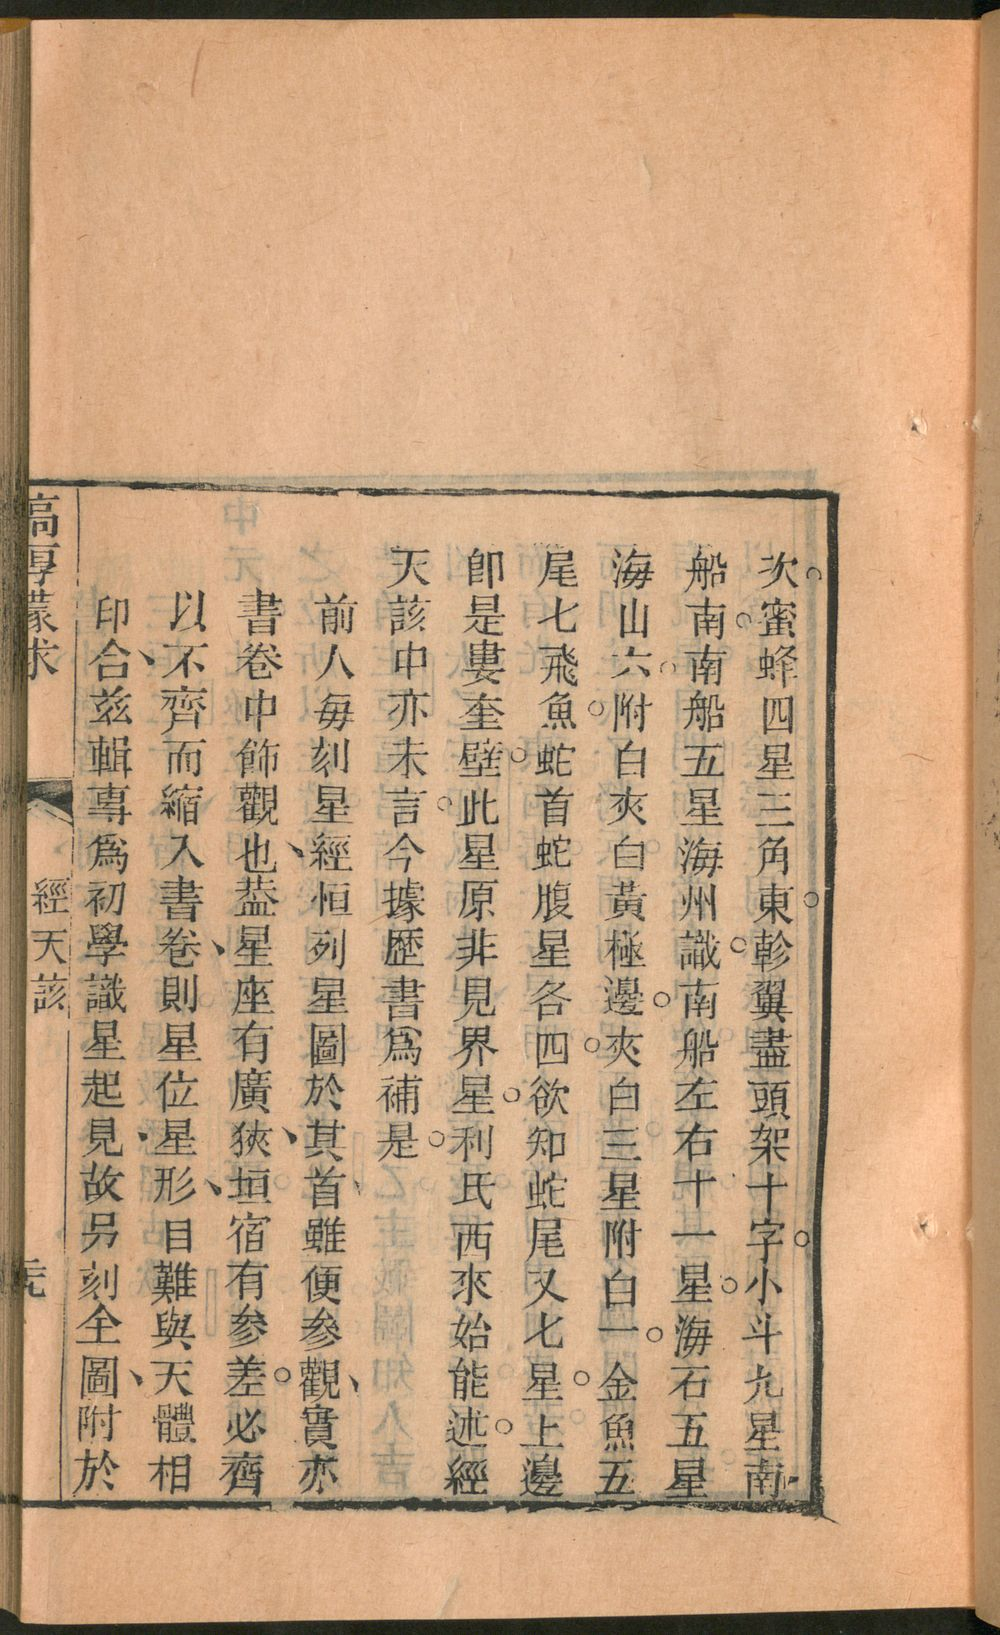 次蜜蜂四星三角東軫翼盡頭架十字小斗九星南
船南南船五星海州識南船左右十一星海石五星
海山六附白夾白黃極邊夾白三星附白一金魚五
尾七飛魚蛇首蛇腹星各四欲知蛇尾又七星上邊
卽是婁奎壁此星原非見界星利氏西來始能述經
天該中亦未言今據歷書爲補是
前人每刻星經恒列星圖於其首雖便參觀實亦
書卷中飾觀也葢星座有廣狹垣宿有參差必齊
以不齊而縮入書卷則星位星形目難與天體相
印合茲輯專爲初學識星起見故另刻全圖附於
高厚蒙求
經天該